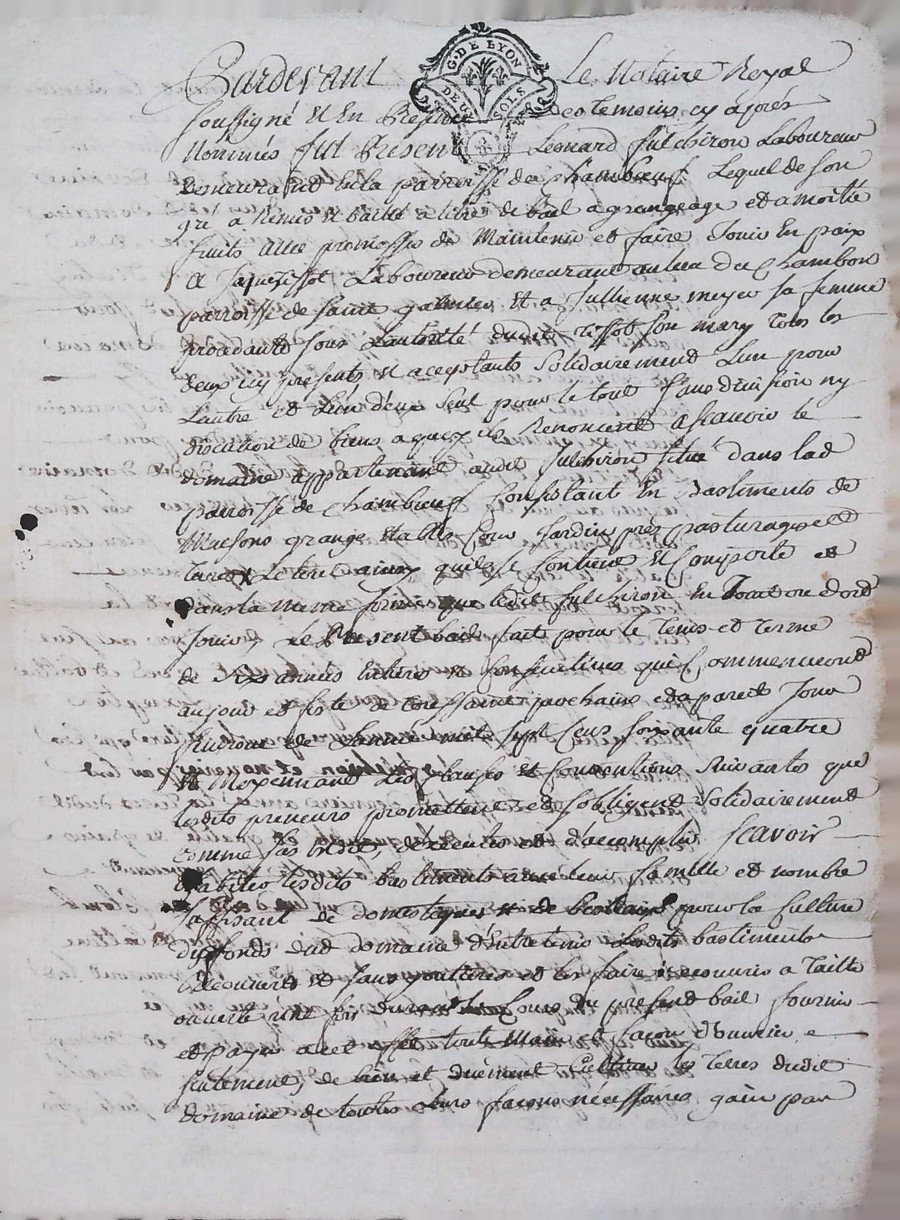 G. DE LYON
DEUX SOLS
Pardevant Le Notaire Royal
soussigné Et En Presence des temoins cy apres
Nommés fut Present Leonard fulchiron Laboureur
demeurant en la parroisse de Chambœuf Lequel de son
gré a Remis et baillé a titre de bail a grangeage et a moitié
fruits avec promesse de Maintenir et faire Jouir En paix
a Tissot Laboureur demeurant au lieu du Chambon
parroisse de saint galmier et a Jullienne meyer sa femme
procedante sous Lautorité dudit Tissot son mary tous les
deux icy presents et acceptants solidairement Lun pour
Lautre et L'un d'eux seul pour le tout sans division ny
discution de biens a quoy ils Renoncent ascavoir le
domaine appartenant audit fulchiron situé dans lad
parroisse de Chambœuf Consistant En Bastiments de
Maisons grange Etables Cour Jardin prés pasturages et
terres Le tout ainsy quil se Contient Et Comporte et
dans la meme forme que ledit fulchiron En
Jouir, Le Present bail fait pour le tems et terme
de six années Entieres et consecutives qui Commenceront
au jour et feste de toussaint prochaine et a pareil Jour
finiront de Lannée mil sept Cens soixante quatre
Et Moyennant Les Clauses et Conventions suivantes que
lesdits preneurs promettent et s'obligent solidairement
comme sus est dit, d'executer et d'accomplir scavoir
d'habiter lesdits bastiments avec leur famille et nombre
suffisant de domestiques et de bestiaux pour la Culture
des fonds dud domaine d'Entretenir Lesdits bastiments
recouverts et sans goutieres et les faire recouvrir a Taille
ouverte une fois durant le Cours du present bail fournir
et payer a cet effet touts et façon d'ouvrier
de bien et duement Cultiver les Terres dudit
domaine de toutes leurs façons necessaires gain par